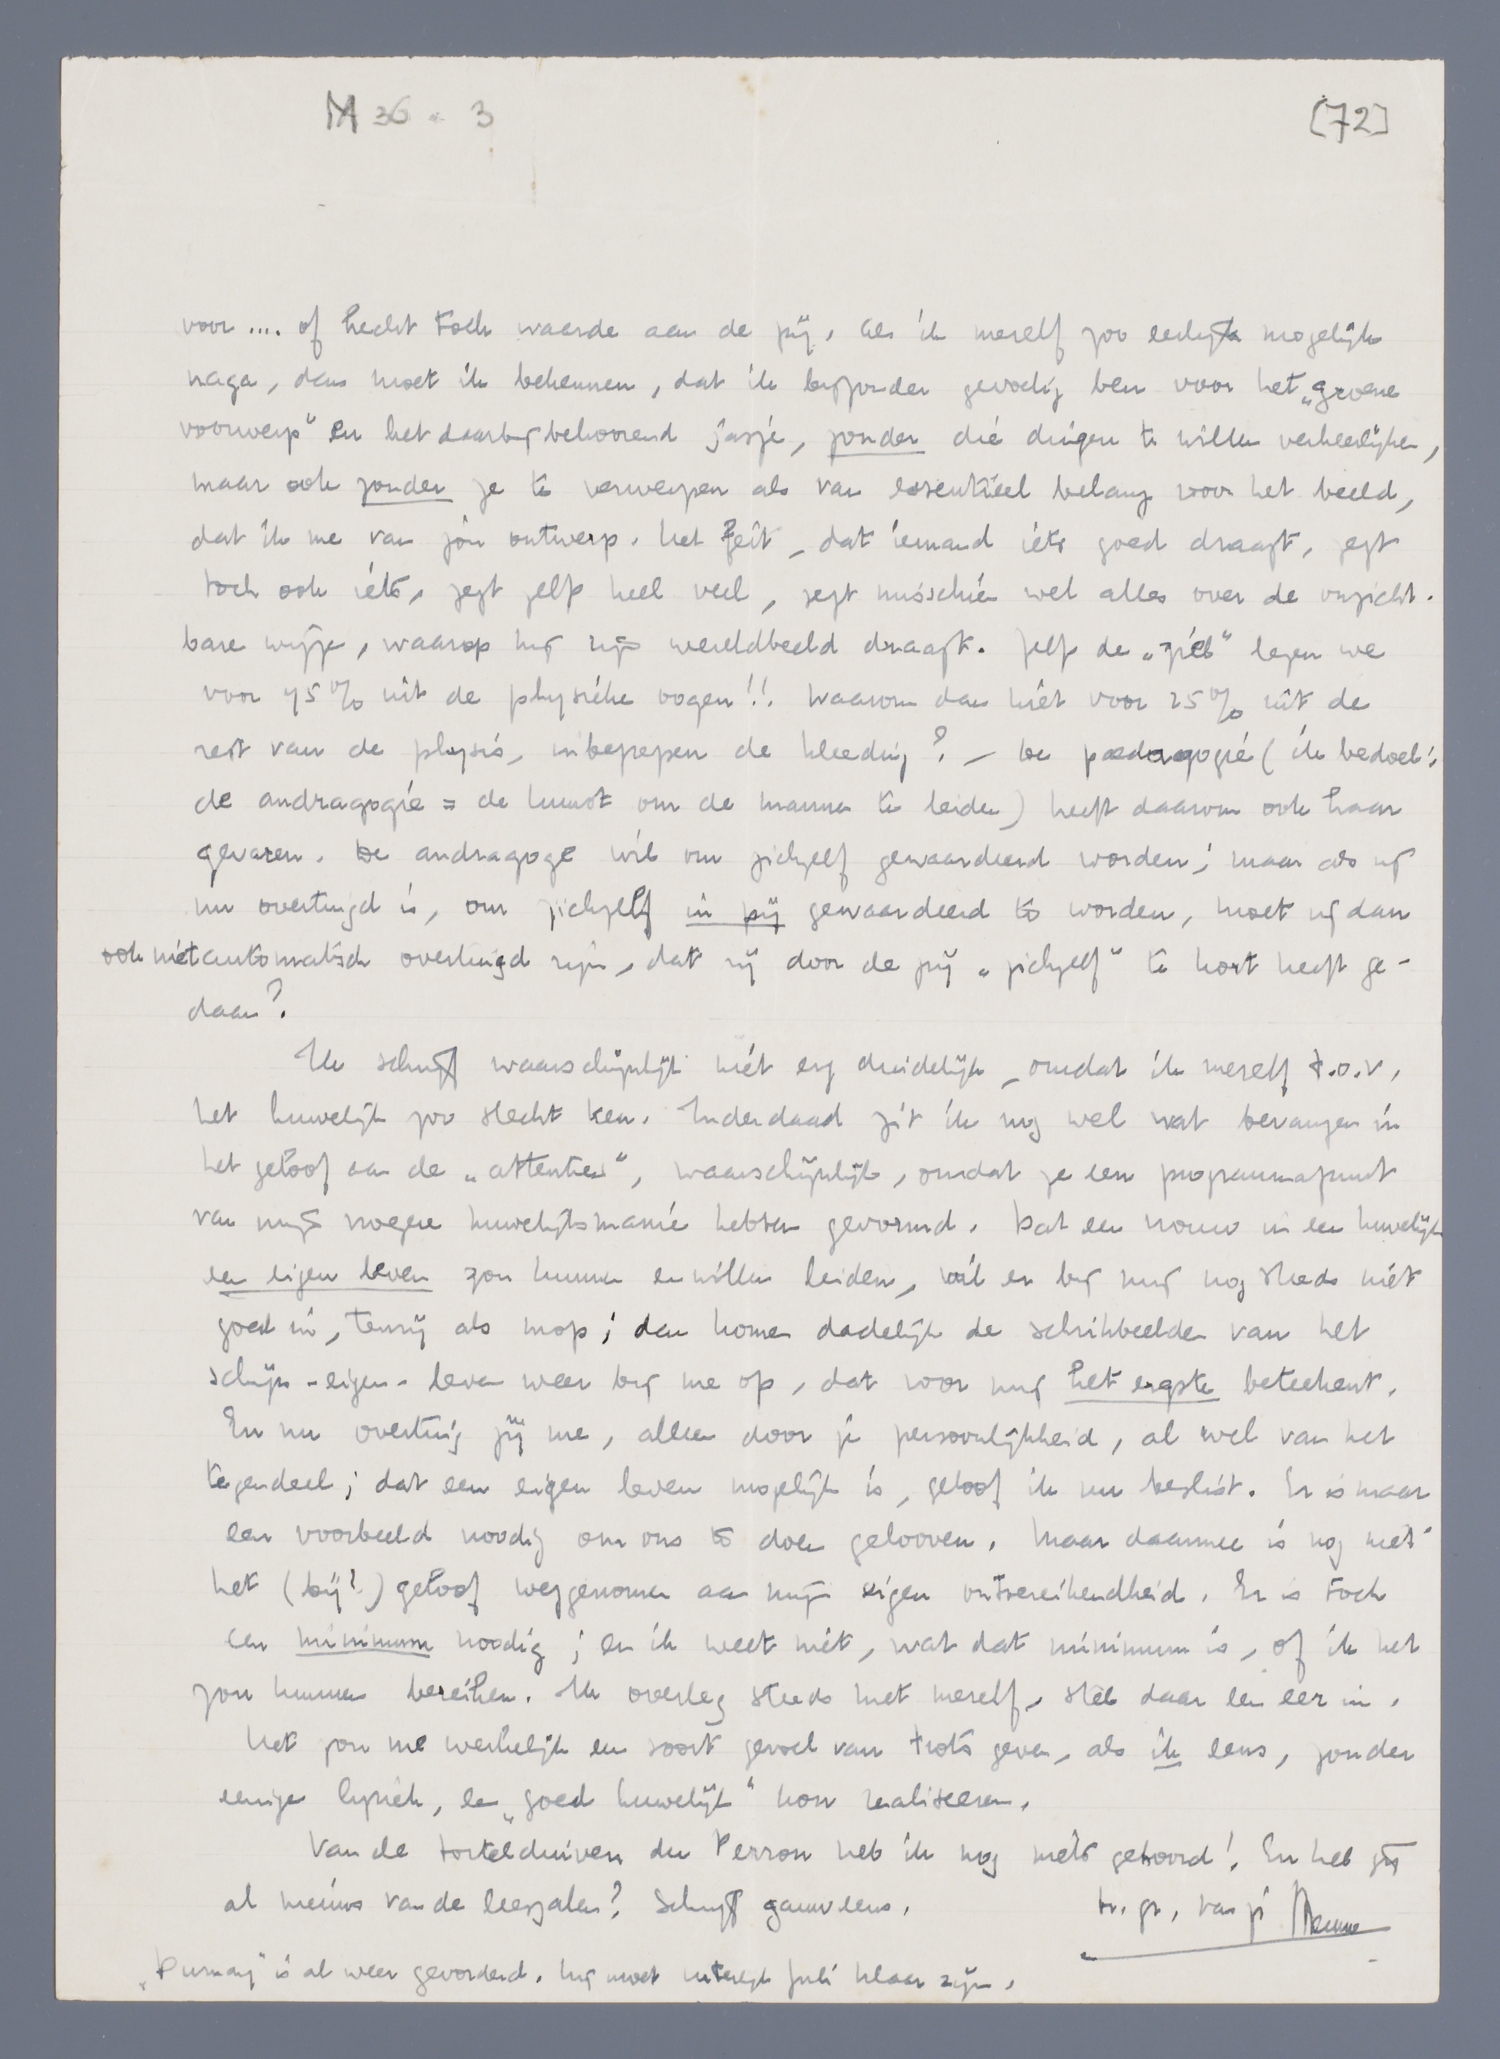 M 36 - 3
[72]
voor .... of hecht toch waarde aan de pij. Als ik mezelf zoo eerlijk mogelijk
naga, dan moet ik bekennen, dat ik bijzonder gevoelig ben voor het „groene
voorwerp" en het daarbij behoorend jasje, zonder die dingen te willen verheerlijken,
maar ook zonder ze te verwerpen als van essentieel belang voor het beeld,
dat ik me van jou ontwerp. Het feit, dat iemand iets goed draagt, zegt
toch ook iets, zegt zelfs heel veel, zegt misschien wel alles over de onzicht-
bare wijze, waarop hij zijn wereldbeeld draagt. Zelfs de „ziel" lezen we
voor 75% uit de physieke oogen!! Waarom dan niet voor 25% uit de
rest van de physis, inbegrepen de kleeding? – De paedagogie (ik bedoel:
de andragogie = de kunst om de mannen te leiden) heeft daarom ook haar
gevaren. De andragoge wil om zichzelf gewaardeerd worden; maar als zij
nu overtuigd is, om zichzelf in pij gewaardeerd te worden, moet zij dan
ook niet automatisch overtuigd zijn, dat zij door de pij „zichzelf" te kort heeft ge-
daan?
Ik schrijf waarschijnlijk niet erg duidelijk, omdat ik mezelf t.o.v.
het huwelijk zoo slecht ken. Inderdaad zit ik nog wel wat bevangen in
het geloof aan de „attenties", waarschijnlijk, omdat ze een programmapunt
van mijn vroegere huwelijksmanie hebben gevormd. Dat een vrouw in een huwelijk
een eigen leven zou kunnen en willen leiden, wil er bij mij nog steeds niet
goed in, tenzij als mop; dan komen dadelijk de schrikbeelden van het
schijn-eigen-leven weer bij me op, dat voor mij het ergste beteekent.
En nu overtuig jij me, alleen door je persoonlijkheid, al wel van het
tegendeel; dat een eigen leven mogelijk is, geloof ik nu beslist. Er is maar
een voorbeeld noodig om ons te doen gelooven. Maar daarmee is nog niet
het (bij?) geloof weggenomen aan mijn eigen ontoereikendheid. Er is toch
een minimum noodig; en ik weet niet, wat dat minimum is, of ik het
zou kunnen bereiken. Ik overleg steeds met mezelf, stel daar een eer in.
Het zou me werkelijk een soort gevoel van trots geven, als ik eens, zonder
eenige lyriek, een „goed huwelijk" kon realiseeren.
Van de tortelduiven du Perron heb ik nog niets gehoord! En heb jij
al nieuws van de leeszalen? Schrijf gauw eens.
h. gr. van je Menno
„Dumay" is al weer gevorderd. Hij moet uiterlijk Juli klaar zijn.